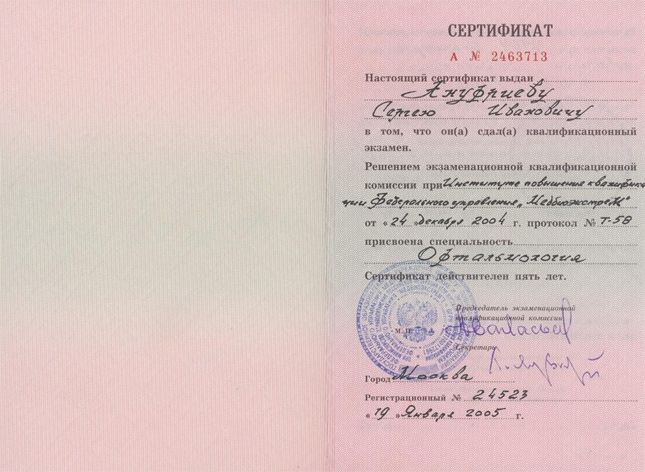 СЕРТИФИКАТ
А № 2463713
Настоящий сертификат выдан
Ануфриеву
Сергею Ивановичу
в том, что он(а) сдал(а) квалификационный
экзамен.
Решением экзаменационной квалификационной
комиссии при Институте повышения квалифика
ции Федерального управления „Медбиоэкстрем"
от « 24 » декабря 2004 г. протокол № Т-58
присвоена специальность
Офтальмология
Сертификат действителен пять лет.
Председатель экзаменационной
квалификационной комиссии
М.П.
Секретарь
Город Москва
Регистрационный № 24523
« 19 » Января 2005 г.